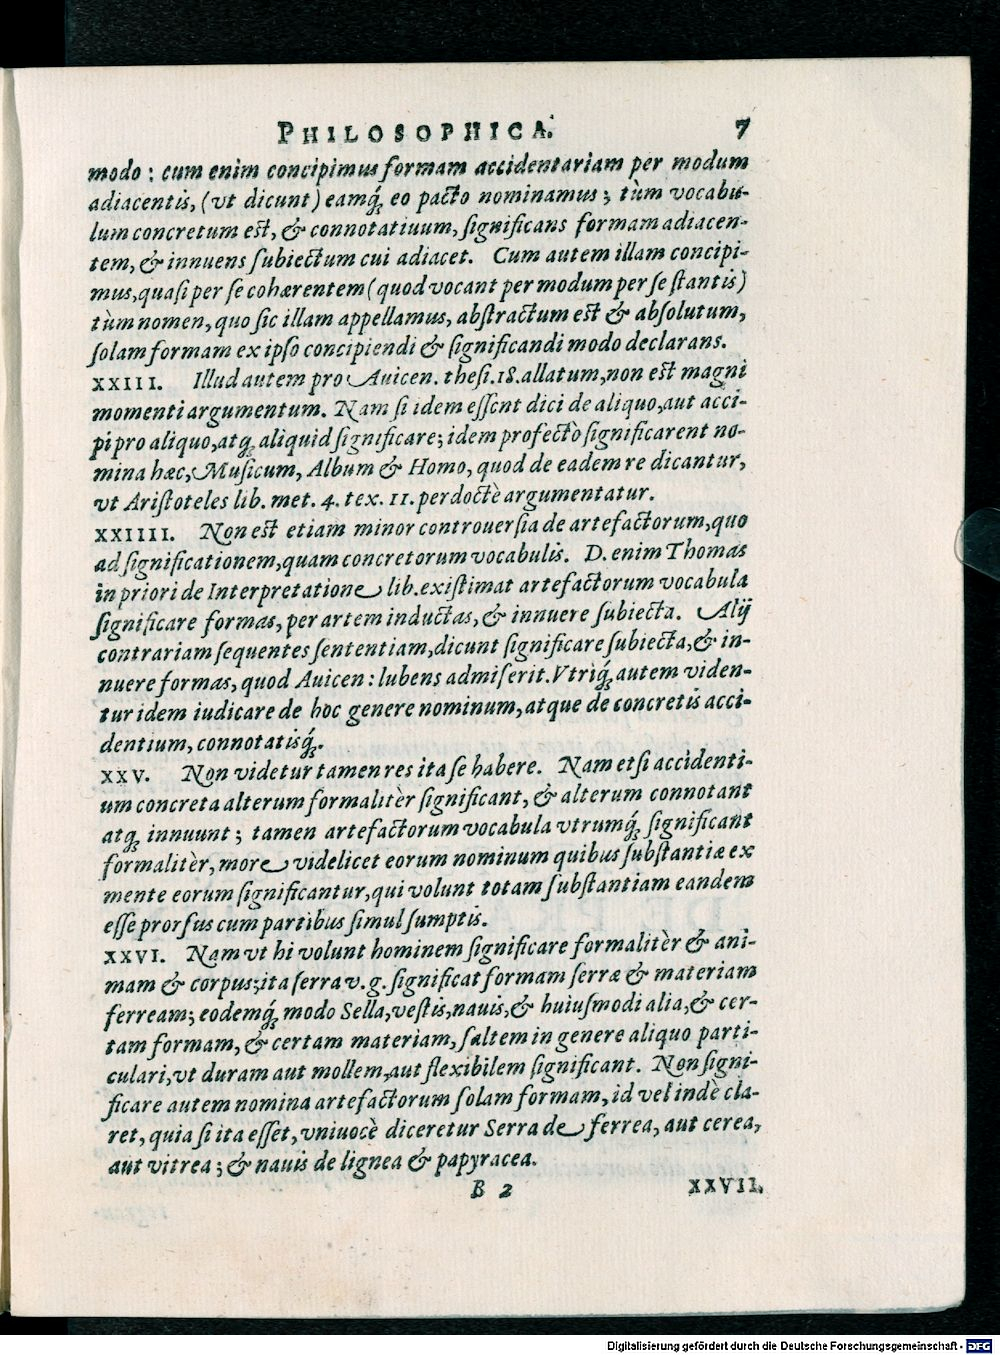 PHILOSOPHICA. 7
modo: cum enim concipimus formam accidentariam per modum
adiacentis, (vt dicunt) eamq́ꝫ eo pacto nominamus; tùm vocabu-
lum concretum est, & connotatiuum, significans formam adiacen-
tem, & innuens subiectum cui adiacet. Cum autem illam concipi-
mus, quasi per se cohærentem (quod vocant per modum per se stantis)
tùm nomen, quo sic illam appellamus, abstractum est & absolutum,
solam formam ex ipso concipiendi & significandi modo declarans.
XXIII. Illud autem pro Auicen. thesi. 18. allatum, non est magni
momenti argumentum. Nam si idem essent dici de aliquo, aut acci-
pi pro aliquo, atqꝫ aliquid significare; idem profectò significarent no-
mina hæc, Musicum, Album & Homo, quod de eadem re dicantur,
vt Aristoteles lib. met. 4. tex. 11. perdoctè argumentatur.
XXIIII. Non est etiam minor controuersia de artefactorum, quo
ad significationem, quam concretorum vocabulis. D. enim Thomas
in priori de Interpretatione lib. existimat artefactorum vocabula
significare formas, per artem inductas, & innuere subiecta. Alij
contrariam sequentes sententiam, dicunt significare subiecta, & in-
nuere formas, quod Auicen: lubens admiserit. Vtriq́ꝫ autem viden-
tur idem iudicare de hoc genere nominum, atque de concretis acci-
dentium, connotatisq́ꝫ.
XXV. Non videtur tamen res ita se habere. Nam etsi accidenti-
um concreta alterum formalitèr significant, & alterum connotant
atqꝫ innuunt; tamen artefactorum vocabula vtrumq́ꝫ significant
formalitèr, more videlicet eorum nominum quibus substantiæ ex
mente eorum significantur, qui volunt totam substantiam eandem
esse prorsus cum partibus simul sumptis.
XXVI. Nam vt hi volunt hominem significare formalitèr & ani-
mam & corpus; ita serra v. g. significat formam serræ & materiam
ferream; eodemq́ꝫ modo Sella, vestis, nauis, & huiusmodi alia, & cer-
tam formam, & certam materiam, saltem in genere aliquo parti-
culari, vt duram aut mollem, aut flexibilem significant. Non signi-
ficare autem nomina artefactorum solam formam, id vel indè cla-
ret, quia si ita esset, vniuocè diceretur Serra de ferrea, aut cerea,
aut vitrea; & nauis de lignea & papyracea.
B 2 XXVII.
Digitalisierung gefördert durch die Deutsche Forschungsgemeinschaft - DFG